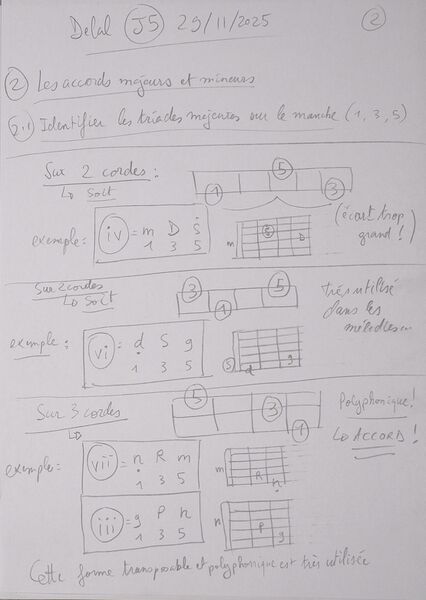 Delal J5 29/11/2025 2
2 Les accords majeurs et mineurs
2.1 Identifier les triades majeures sur le manche (1, 3, 5)
Sur 2 cordes :
Soit
5
1 3
exemple: iv = m D S
1 3 5
m S D
(écart trop grand !)
Sur 2 cordes
Soit
3 5
1
très utilisé
dans les
mélodies
exemple : vi = d S g
1 3 5
S d g
Sur 3 cordes
5
3
1
Polyphonique !
ACCORD !
exemple: vii = n R m
1 3 5
m R n
iii = g P n
1 3 5
n P g
Cette forme transposable et polyphonique est très utilisée